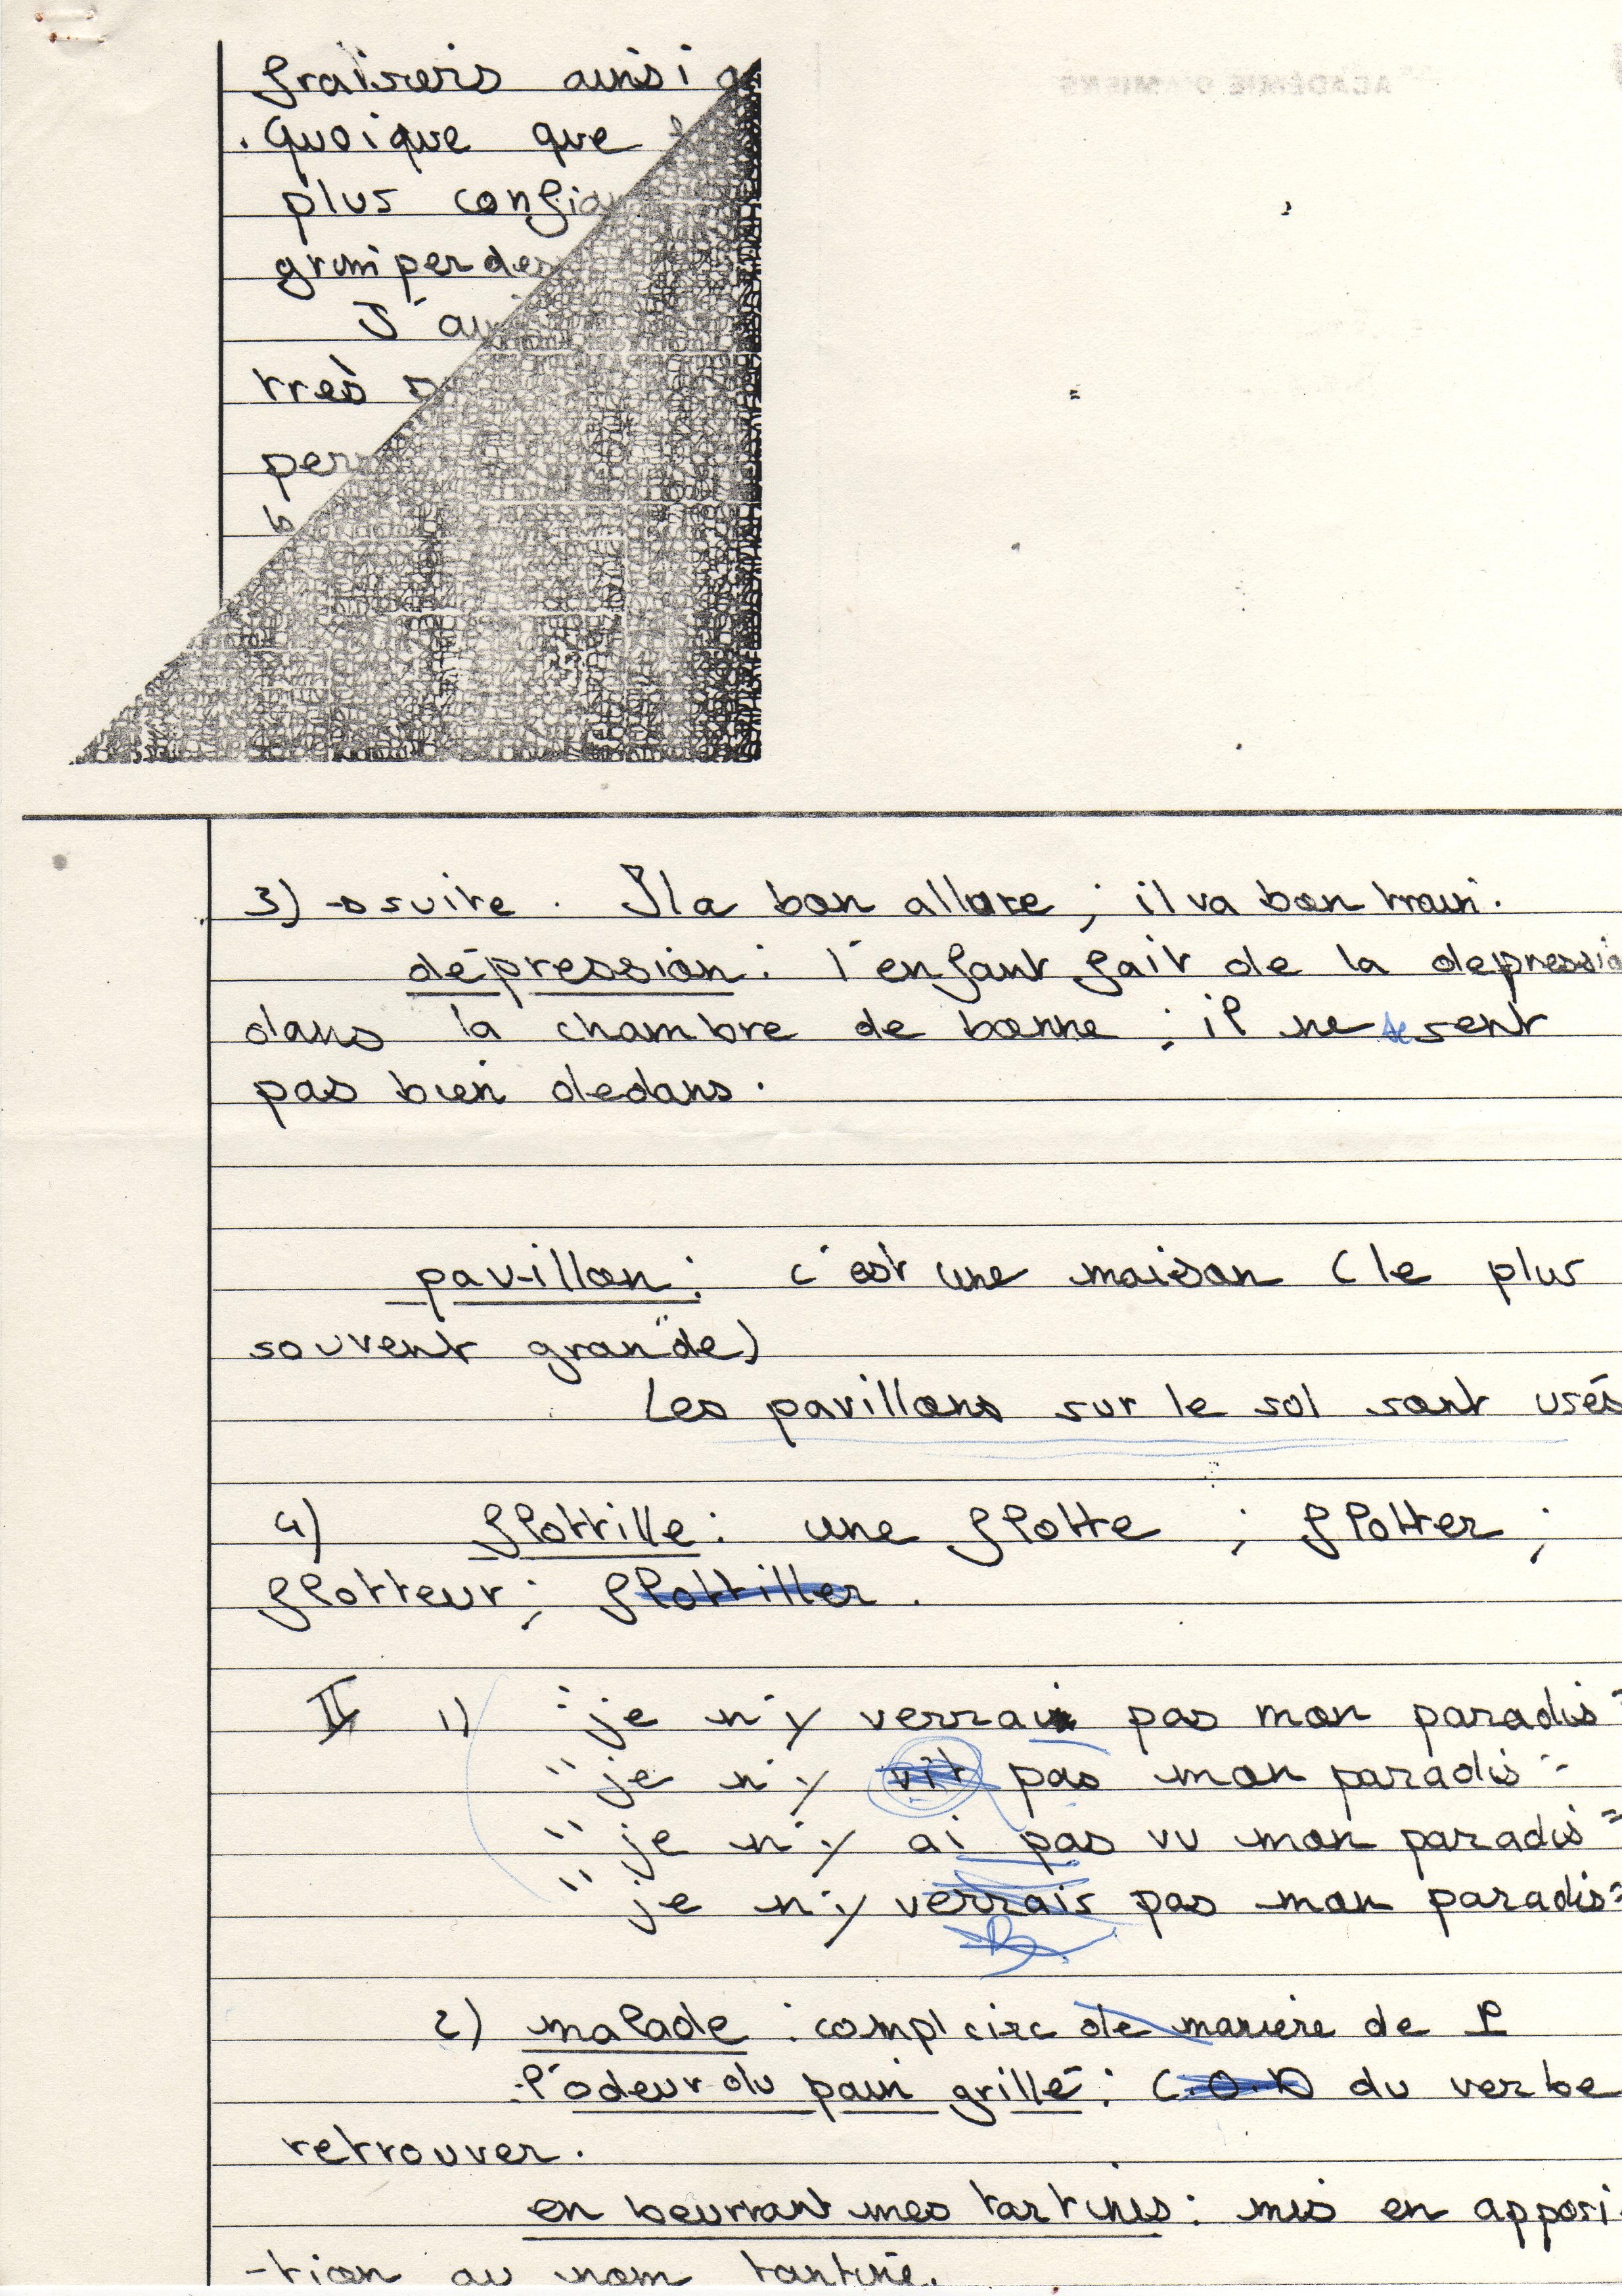 fraisiers ainsi
. Quoique que
plus confian
grimper des
J'ai
très s
per
b
ACADÉMIE D'AMIENS
3) → suite . Il a bon allure ; il va bon train.
dépression : l'enfant fait de la depressio
dans la chambre de bonne ; il ne se sent
pas bien dedans.
pavillon : c'est une maison (le plus
souvent grande)
Les pavillons sur le sol sont usés
4) flottille : une flotte ; flotter ;
flotteur ; flottiller .
II 1) "je n'y verrai pas mon paradis"
"je n'y vit pas mon paradis"
"je n'y ai pas vu mon paradis"
"je n'y verrais pas mon paradis"
2) malade : compl circ de manière de
l'odeur du pain grillé : C.O.D du verbe
retrouver.
en beurrant mes tartines : mis en apposi-
-tion au nom tartine.